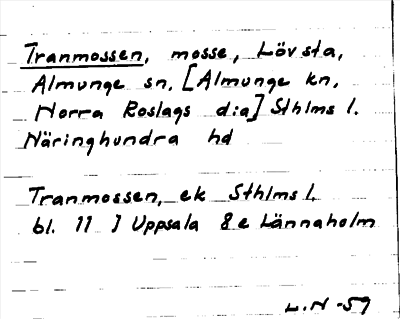 Tranmossen, mosse, Lövsta,
Almunge sn, [Almunge kn,
Norra Roslags d:a] Sthlms l.
Näringhundra hd
Tranmossen, ek Sthlms l.
bl. 11 I Uppsala 8e Lännaholm
L.N -59